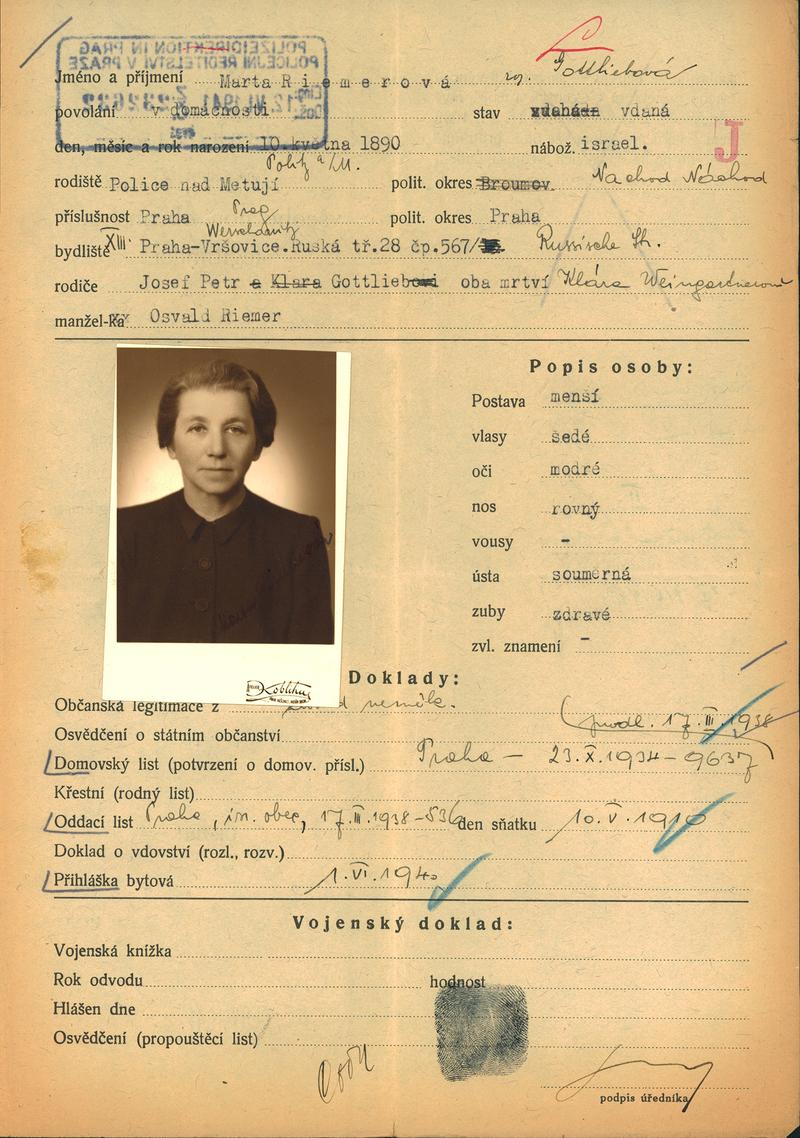 POLIZEIDIREKTION IN PRAG
POLICEJNÍ ŘEDITELSTVÍ V PRAZE
Jméno a příjmení Marta Riemerová roz. Gottliebová
povolání v domácnosti stav vdaná
den, měsíc a rok narození 10.května 1890 nábož. israel.
J
Politz a/M.
rodiště Police nad Metují polit. okres Broumov. Nachod Náchod
Prag
příslušnost Praha polit. okres Praha
Werscholwitz
bydliště XIII Praha-Vršovice.Ruská tř.28 čp.567/ Russische St.
rodiče Josef Petr a Klara Gottlieb oba mrtví Klára Weingartnerová
manžel-ka Osvald Riemer
Popis osoby:
Postava menší
vlasy šedé
oči modré
nos rovný
vousy -
ústa souměrná
zuby zdravé
zvl. znamení -
Doklady:
Občanská legitimace z
prodl. 17.III.1938
Osvědčení o státním občanství
Domovský list (potvrzení o domov. přísl.) Praha - 23.X.1934 - 9637
Křestní (rodný list)
Oddací list Praha, 17.III.1938 - 536 den sňatku 10.V.1910
Doklad o vdovství (rozl., rozv.)
Přihláška bytová 1.VI.1940
Vojenský doklad:
Vojenská knížka
Rok odvodu hodnost
Hlášen dne
Osvědčení (propouštěcí list)
podpis úředníka